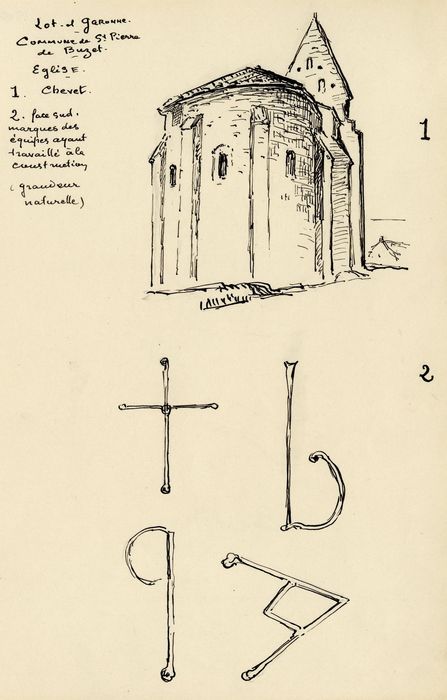 Lot. et Garonne.
Commune de St Pierre
de Buzet.
Eglise.
1. Chevet.
2. face sud.
marques des
équipes ayant
travaillé à la
construction
(grandeur
naturelle)
1
2